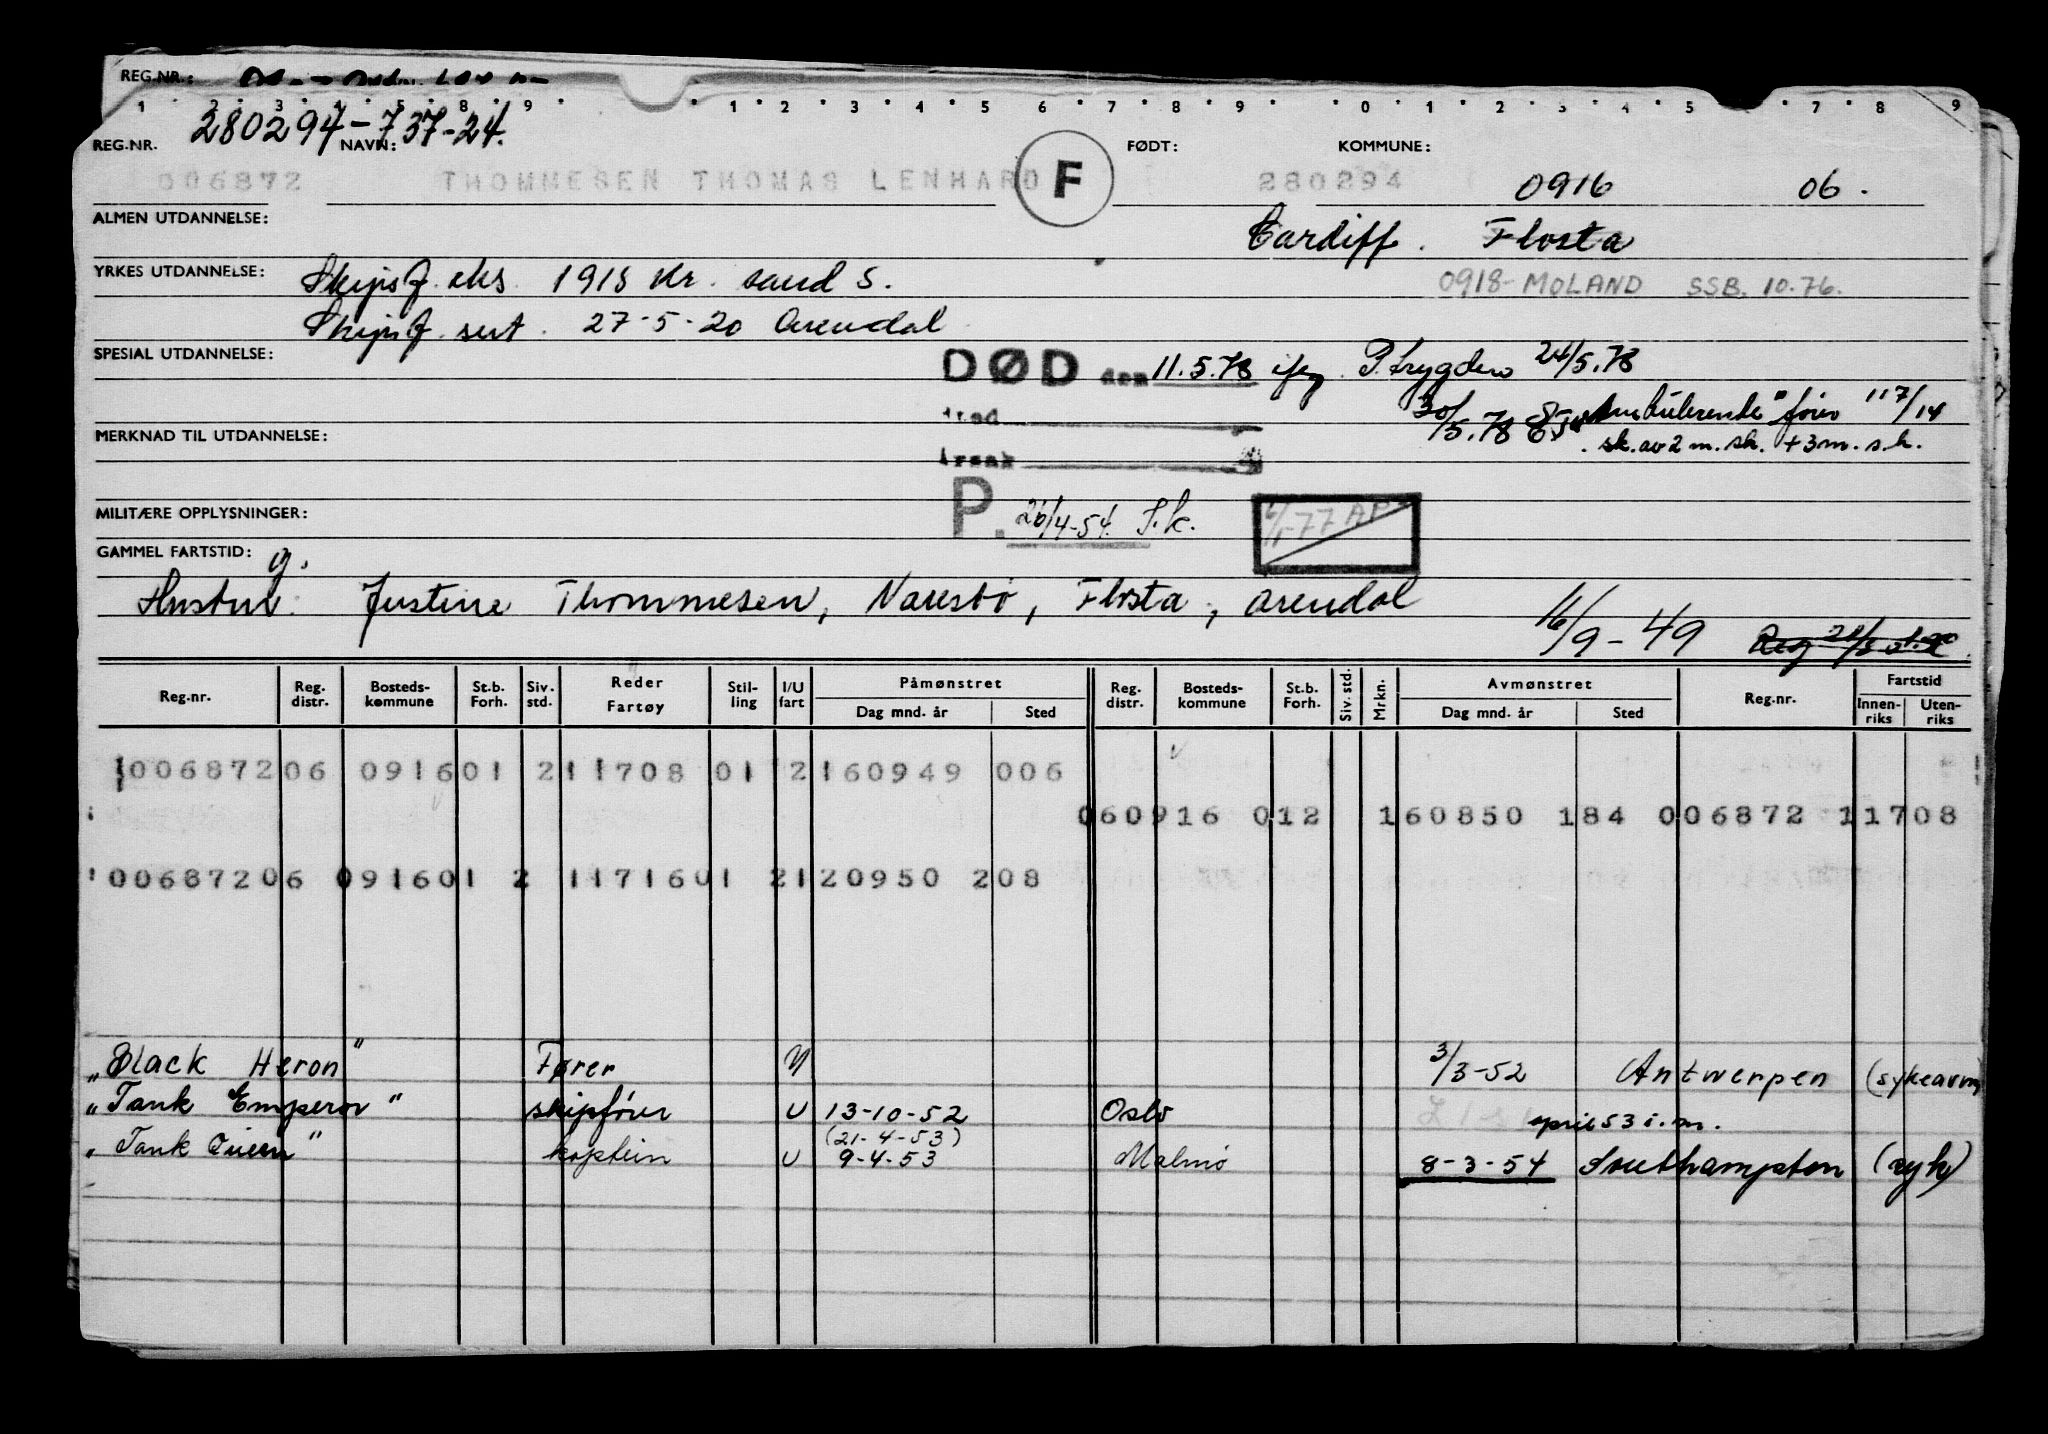 REG.NR.:
1 2 3 4 5 8 9 1 2 3 4 5 6 7 8 9 0 1 2 3 4 5 7 8 9
REG.NR. 280294-737-24. NAVN: FØDT: KOMMUNE:
006872 THOMMESEN THOMAS LENHARD F 280294 0916 06.
ALMEN UTDANNELSE: Cardiff. Flosta
YRKES UTDANNELSE: Skipsf. eks. 1918 Kr. sand S. 0918-MOLAND SSB. 10.76.
Skipsf. sert. 27-5-20 Arendal
SPESIAL UTDANNELSE: DØD den 11.5.78 ifg. P.trygden 24/5.78
sted 30/5.78
MERKNAD TIL UTDANNELSE: sk. av 2 m. sk. + 3 m. s.k.
årsak
MILITÆRE OPPLYSNINGER: P. 26/4-54. S.k. 77 AP
GAMMEL FARTSTID: g.
Hustru: Justine Thommesen, Narestø, Flosta, Arendal
16/9-49
Reg.nr. Reg. distr. Bosteds- kommune St.b. Forh. Siv. std. Reder Fartøy Stil- ling I/U fart Påmønstret Dag mnd. år Sted Reg. distr. Bosteds- kommune St.b. Forh. Siv. std. Mrkn. Avmønstret Dag mnd. år Sted Reg.nr. Fartstid Innen- riks Uten- riks
10068720 6 091601 2 11708 01 2 160949 006
060916 012 160850 184 006872 11708
0068720 6 091601 2 1171601 2120950 208
"Black Heron" Fører U 3/3-52 Antwerpen (sykeavm
"Tank Emperor" skipsfører U 13-10-52 Oslo april 53 i.m.
(21-4-53)
"Tank Queen" kaptein U 9-4-53 Malmö 8-3-54 Southampton (syk)